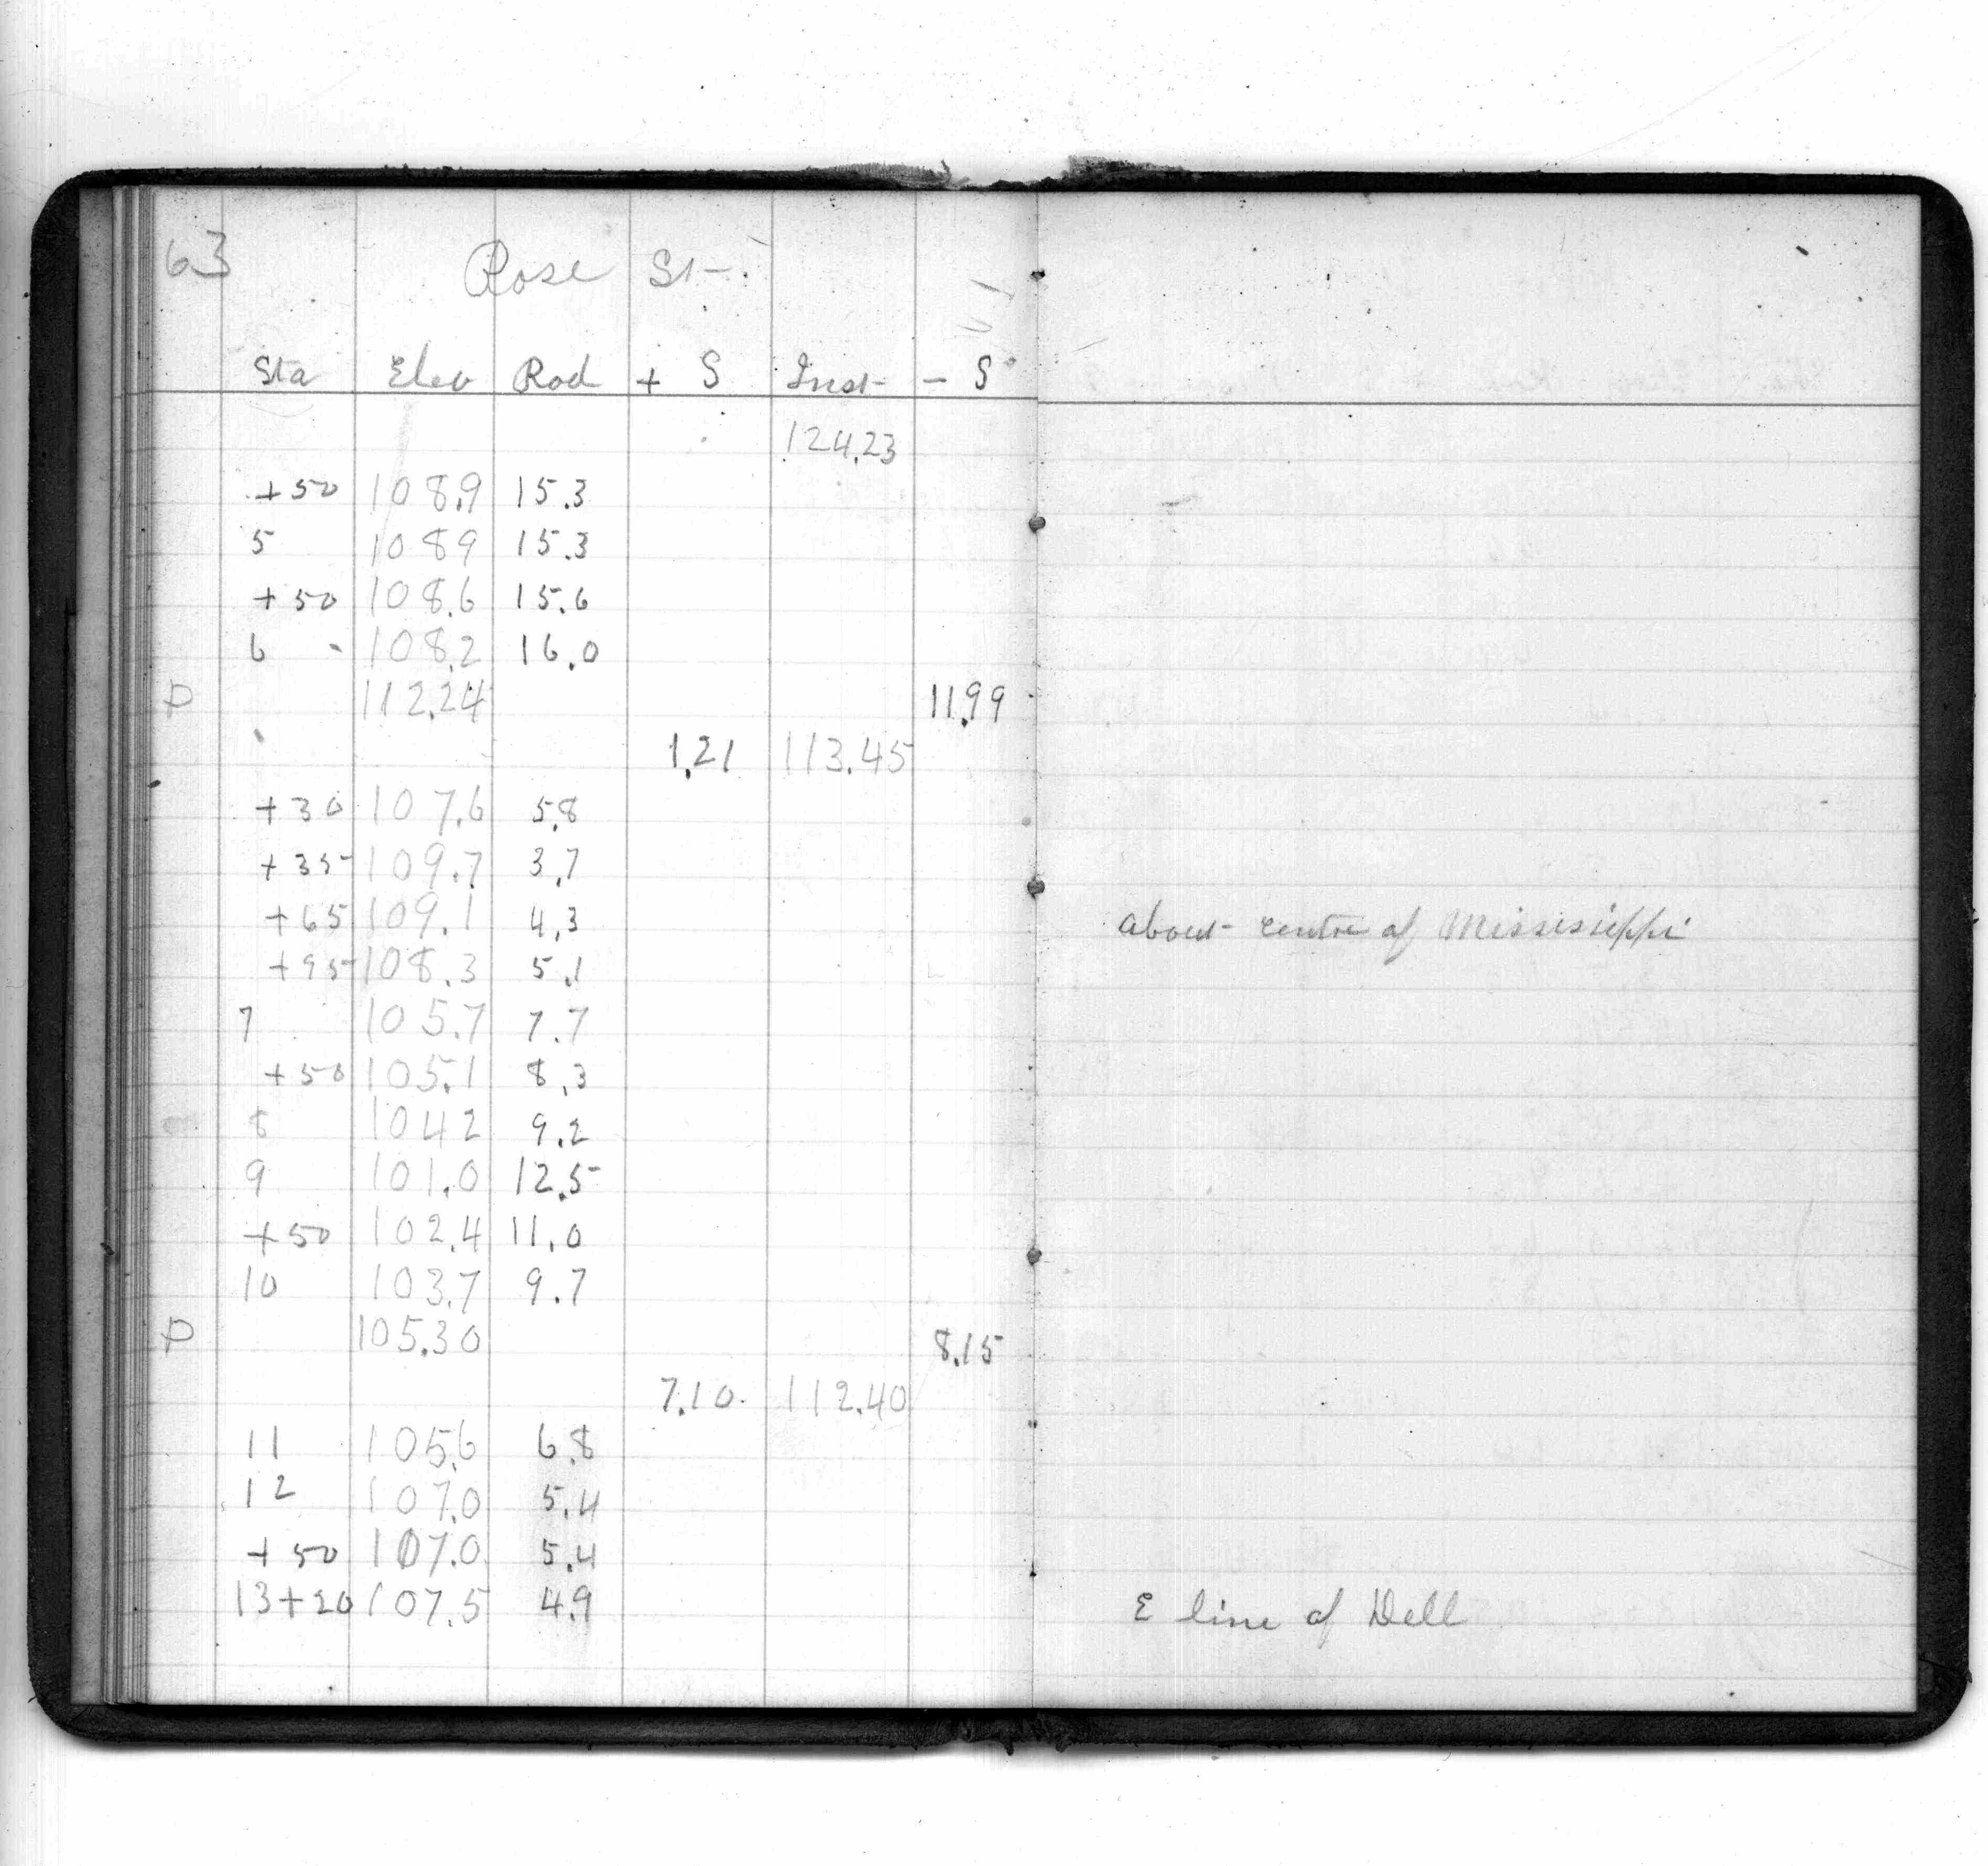 63 Rose St.
Sta Elev Rod + S Inst - S
124.23
+50 108.9 15.3
5 1089 15.3
+50 108.6 15.6
6 108.2 16.0
P 112.24 11.99
1.21 113.45
+30 107.6 5.8
+35 109.7 3.7
+65 109.1 4.3 about centre of Mississippi
+95 108.3 5.1
7 105.7 7.7
+50 105.1 8.3
8 1042 9.2
9 101.0 12.5
+50 102.4 11.0
10 103.7 9.7
P 105.30 8.15
7.10 112.40
11 105.6 6.8
12 107.0 5.4
+50 107.0 5.4
13+20 107.5 4.9 E line of Dell